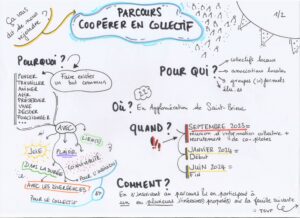 PARCOURS
COOPÉRER EN COLLECTIF
1/2
POURQUOI ?
PENSER
TRAVAILLER
ANIMER
AGIR
PRÉSERVER
VIVRE
DÉCIDER
FONCTIONNER
...
Faire exister
un but commun
AVEC
JOIE
PLAISIR
CLARTÉ
DANS LA DURÉE
CONVIVIALITÉ
AVEC LES DIVERGENCES
POUR LE COLLECTIF
POUR L'INDIVIDU
POUR QUI ?
collectifs locaux
associations locales
groupes (in)formels
etc...
OÙ ? En Agglomération de Saint-Brieuc
QUAND ?
SEPTEMBRE 2023 :
réunion d'information collective +
recrutement de co-pilotes
JANVIER 2024 :
Début
JUIN 2024 :
Fin
COMMENT ?
En s'inscrivant au parcours et en participant à
un ou plusieurs itinéraires proposés sur la feuille suivante